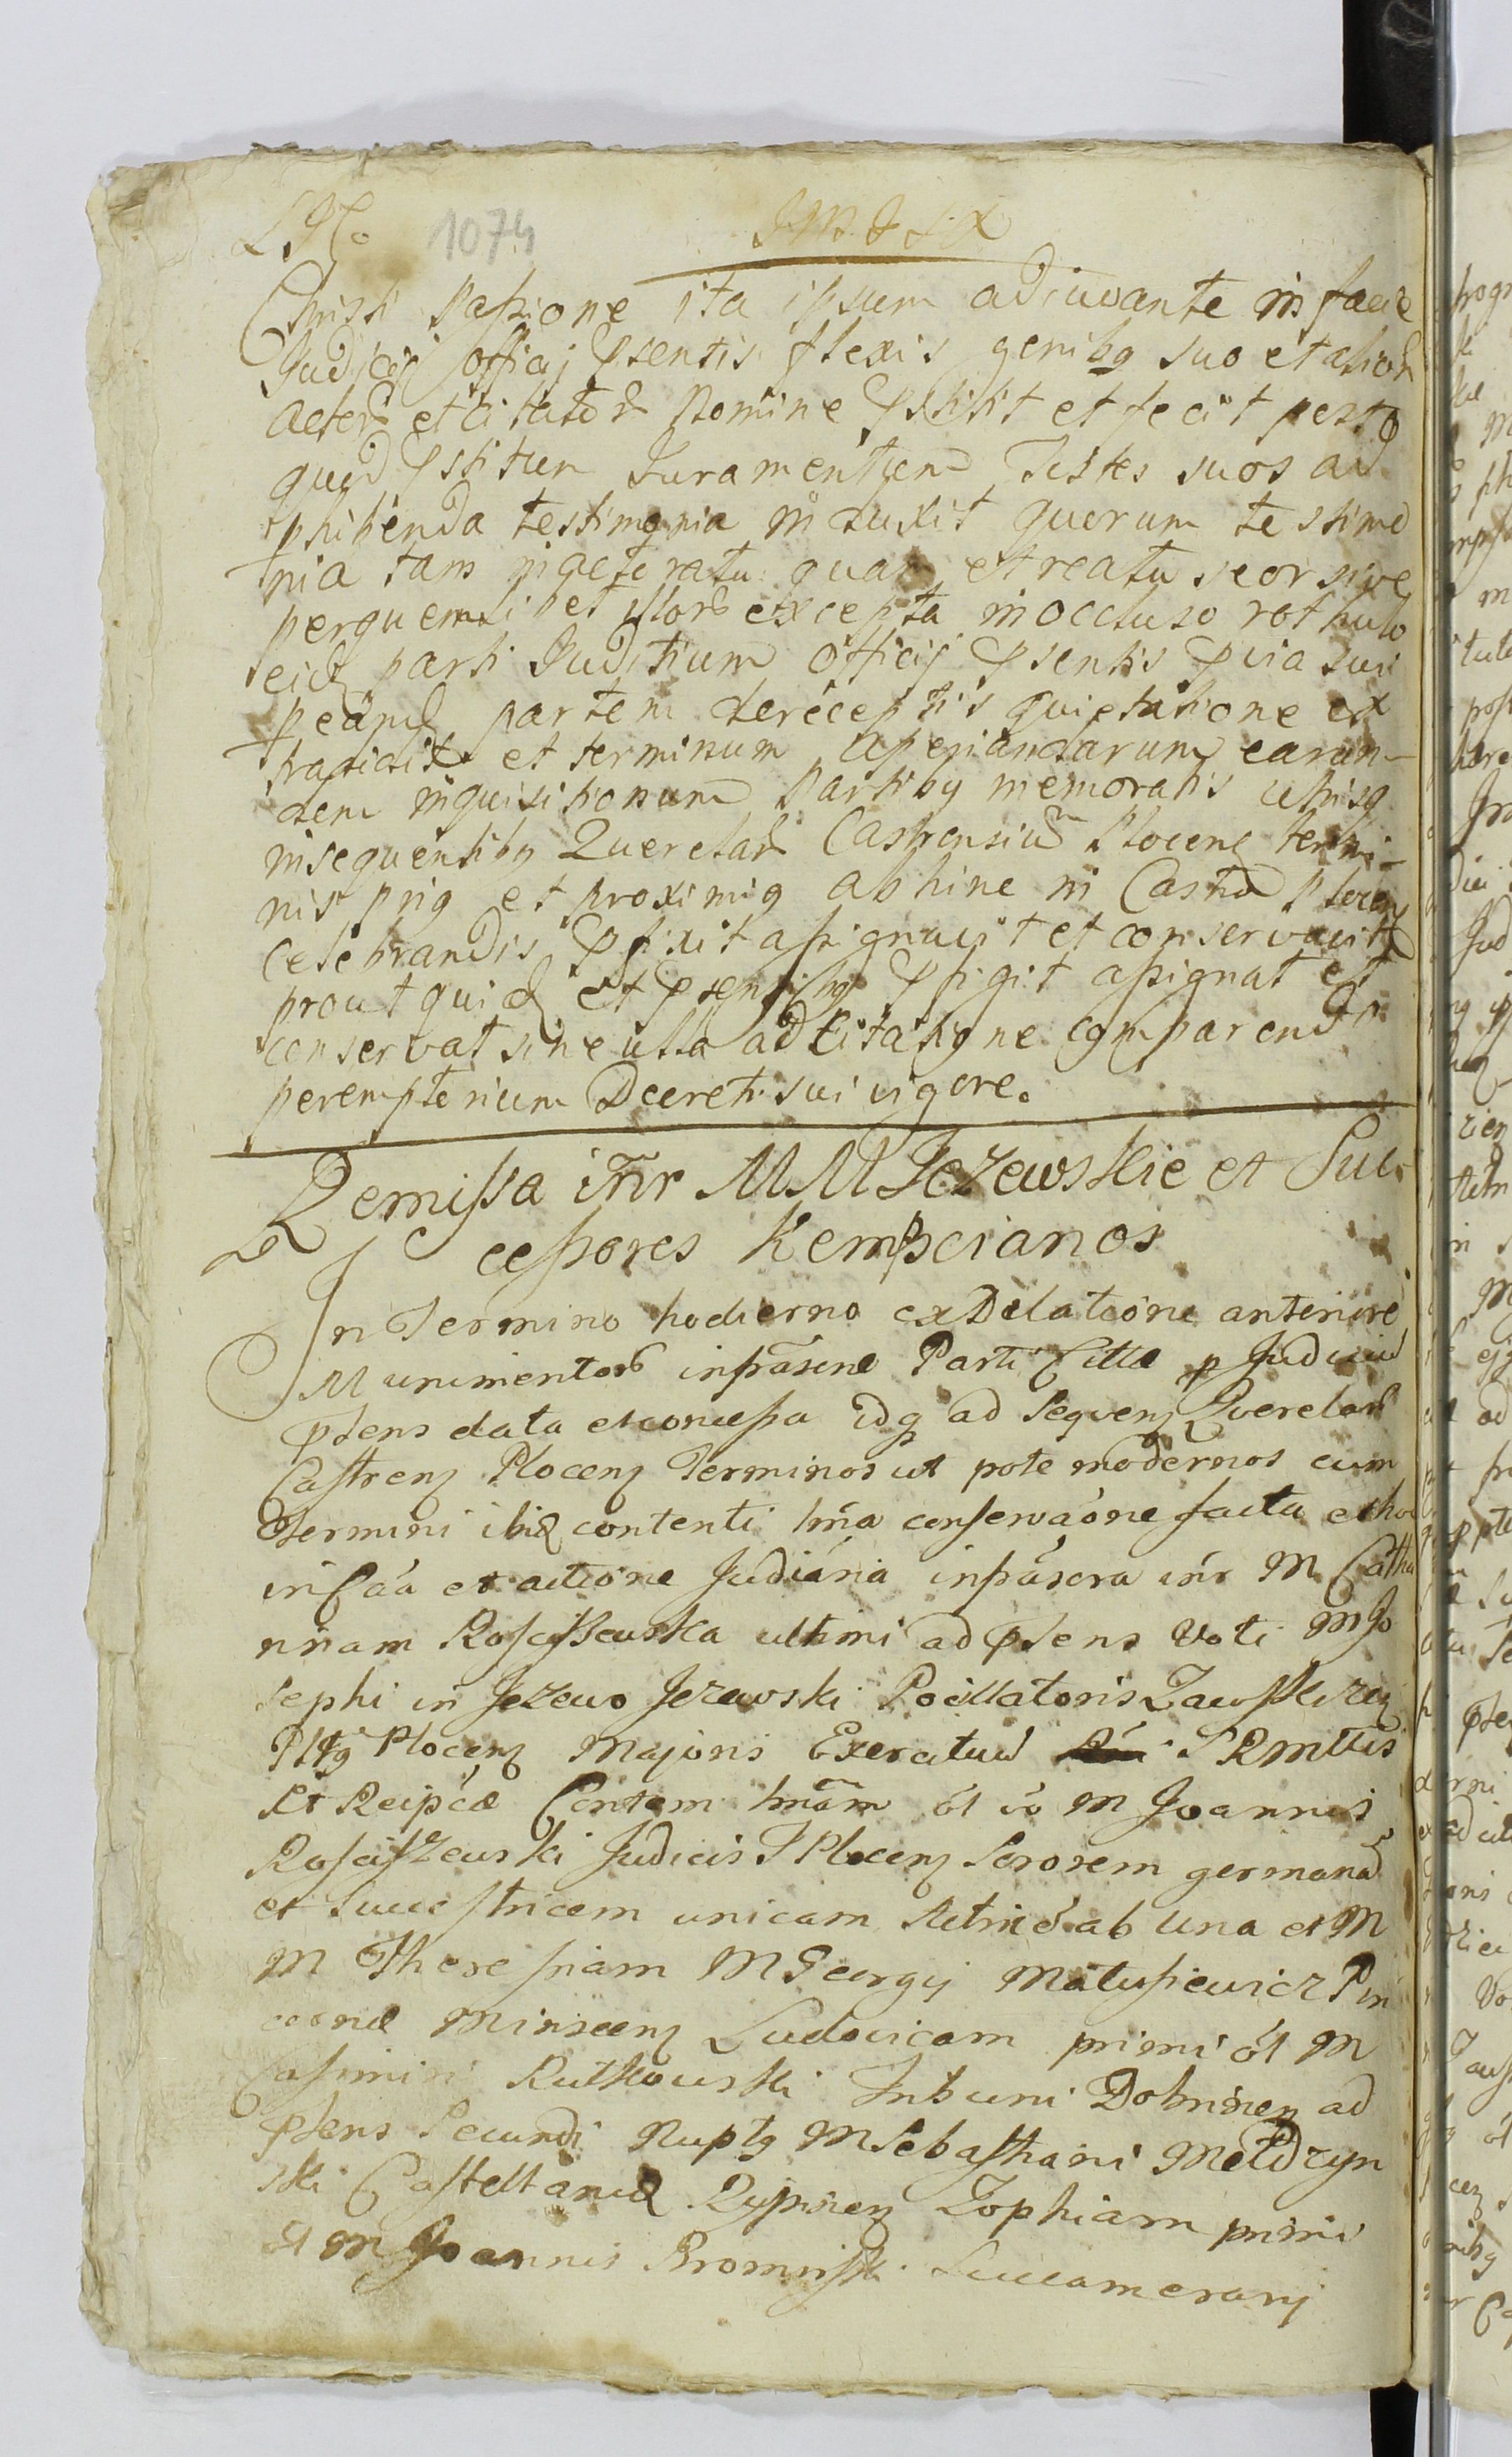 1074
Christi passione ita ipsum adiuvante in facie
Judicij officij psentis flexis genibq suo et alior
actor et citator Nomine pstitit et fecit post
quod pstitum Juramentum Testes suos ad
phibenda testimonia induxit quorum testimo
nia tam in actoratu quam et reatu seorsive
perquemlibet illor excepta in occluso rothulo
eid parti Juditium officij psentis
partem de receptis quietatione ex
et terminum aperiandarum earun-
dem inquisitionum Partibq memoratis utrisq
insequentibq Querelar Castrensium Plocens termi-
nis prig et proximig ab hinc in Castro Plocen
celebrandis pfixit assignavit et conservavit
prout quid et psentibq pfigit assignat et
conservat sine ulla adcitatione comparend
peremptorium Decreti sui vigore.
Remissa intr MM Jezewskie et Suc-
cessores Kempscianos
In Termino hodierno ex Dilatione anteriore
Munimentor infrascne Parti Cittae p Judicium
psens data et concessa idq ad Sequen Querelar
Castren Plocen Terminos ut pote modernos cum
Termini ibid contenti hma conservaone facta et hoc
in Caa et actione Judiaria infrascra intr M Catha
rinam Rosciszewska ultimi ad psens Voti M Jo
sephi in Jezewo Jezewski Pocillatoris Zawskrzen
Plocen Majoris Exercituum S R Mttis
et Reipcae Contem hmam ol vo M Joannis
Rosciszewski Judicis T Plocen Sororem germanam
et Succestricem unicam ab una et M
M Theressiam M Georgij Matusiewicz Pin
cernae Minscen Ludovicam primi ol M
Cassimiri Rutkowski Tribuni Dobrinen ad
psens Secundi Nuptq M Sebastiani Meldzyn
ski Castellanid Rypinen Zophiam primi
ol M Joannis Succamerarij